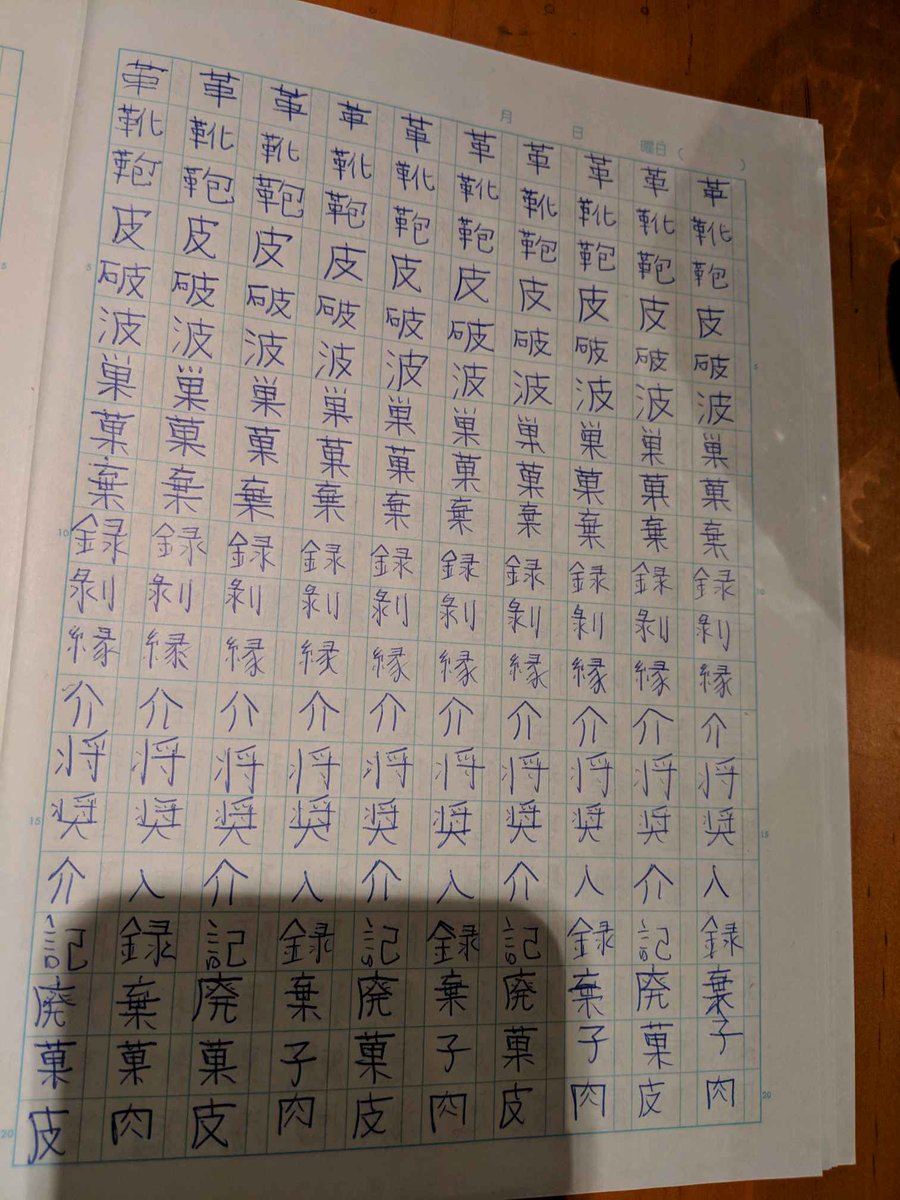 月 日 曜日 ( )
革革革革革革革革革革
靴靴靴靴靴靴靴靴靴靴
鞄鞄鞄鞄鞄鞄鞄鞄鞄鞄
皮皮皮皮皮皮皮皮皮皮
5 破破破破破破破破破破 5
波波波波波波波波波波
巣巣巣巣巣巣巣巣巣巣
菓菓菓菓菓菓菓菓菓菓
棄棄棄棄棄棄棄棄棄棄
10 録録録録録録録録録録 10
剥剥剥剥剥剥剥剥剥剥
縁縁縁縁縁縁縁縁縁縁
介介介介介介介介介介
将将将将将将将将将将
15 奨奨奨奨奨奨奨奨奨奨 15
介入介入介入介入介入
記録記録記録記録記録
廃棄廃棄廃棄廃棄廃棄
菓菓菓子菓子菓子菓子
20 皮肉皮肉皮肉皮肉皮肉 20